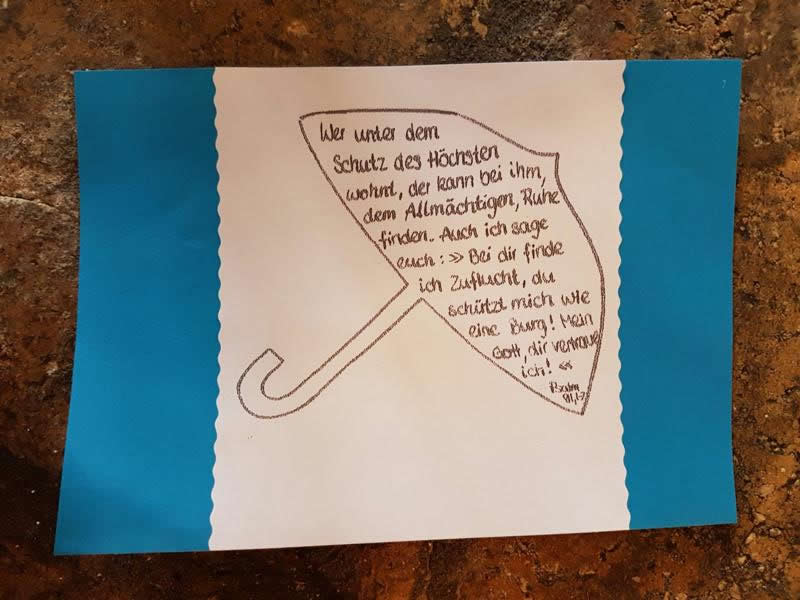 Wer unter dem
Schutz des Höchsten
wohnt, der kann bei ihm,
dem Allmächtigen, Ruhe
finden. Auch ich sage
euch: »Bei dir finde
ich Zuflucht, du
schützt mich wie
eine Burg! Mein
Gott, dir vertraue
ich! «
Psalm